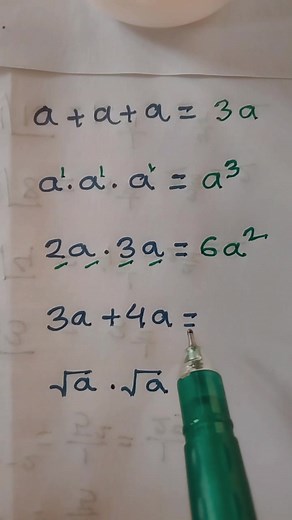 a + a + a = 3a
a¹ · a¹ · a¹ = a³
2a · 3a = 6a²
3a + 4a =
√a · √a